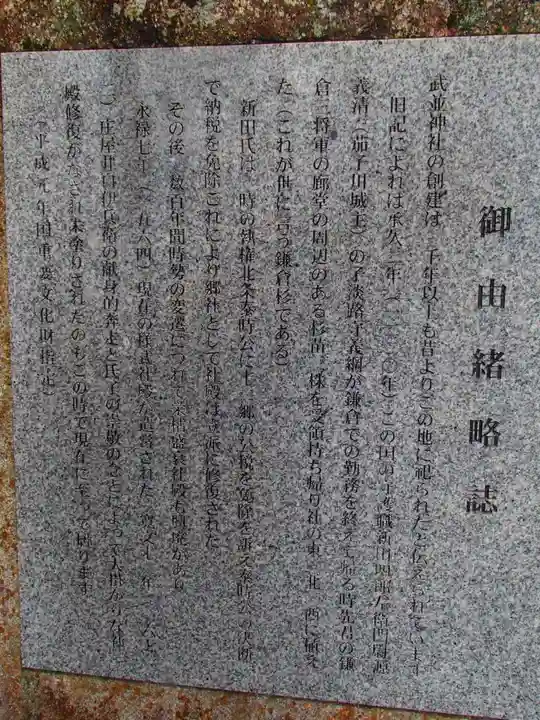 御由緒略誌
武並神社の創建は 千年以上も昔よりこの地に祀られたと伝えられています
旧記によれば承久二年(一二二〇年)この国の守護職新田四郎左衛門尉源
義清(茄子川城主)の子淡路守義綱が鎌倉での勤務を終えて帰る時先君の鎌
倉三将軍の廊堂の周辺のある杉苗三様を受領持ち帰り社の東 北 西に植え
た(これが世に言う鎌倉杉である)
新田氏は 時の執権北条泰時公に十 郷の公税を免除を訴え泰時公の決断
で納税を免除これにより郷社として社殿は立派に修復された
その後 数百年間時勢の変遷につれて栄枯盛衰社殿も頽廃があり
永禄七年(一五六四)現在の様式社殿が造営された 寛文十 年 六七
一)庄屋 伊兵衛の献身的奔走と氏子の崇敬の念とによって大掛かりな社
殿修復がなされ朱塗りされたのもこの時で現在に至って居ります
(平成元年国重要文化財指定)